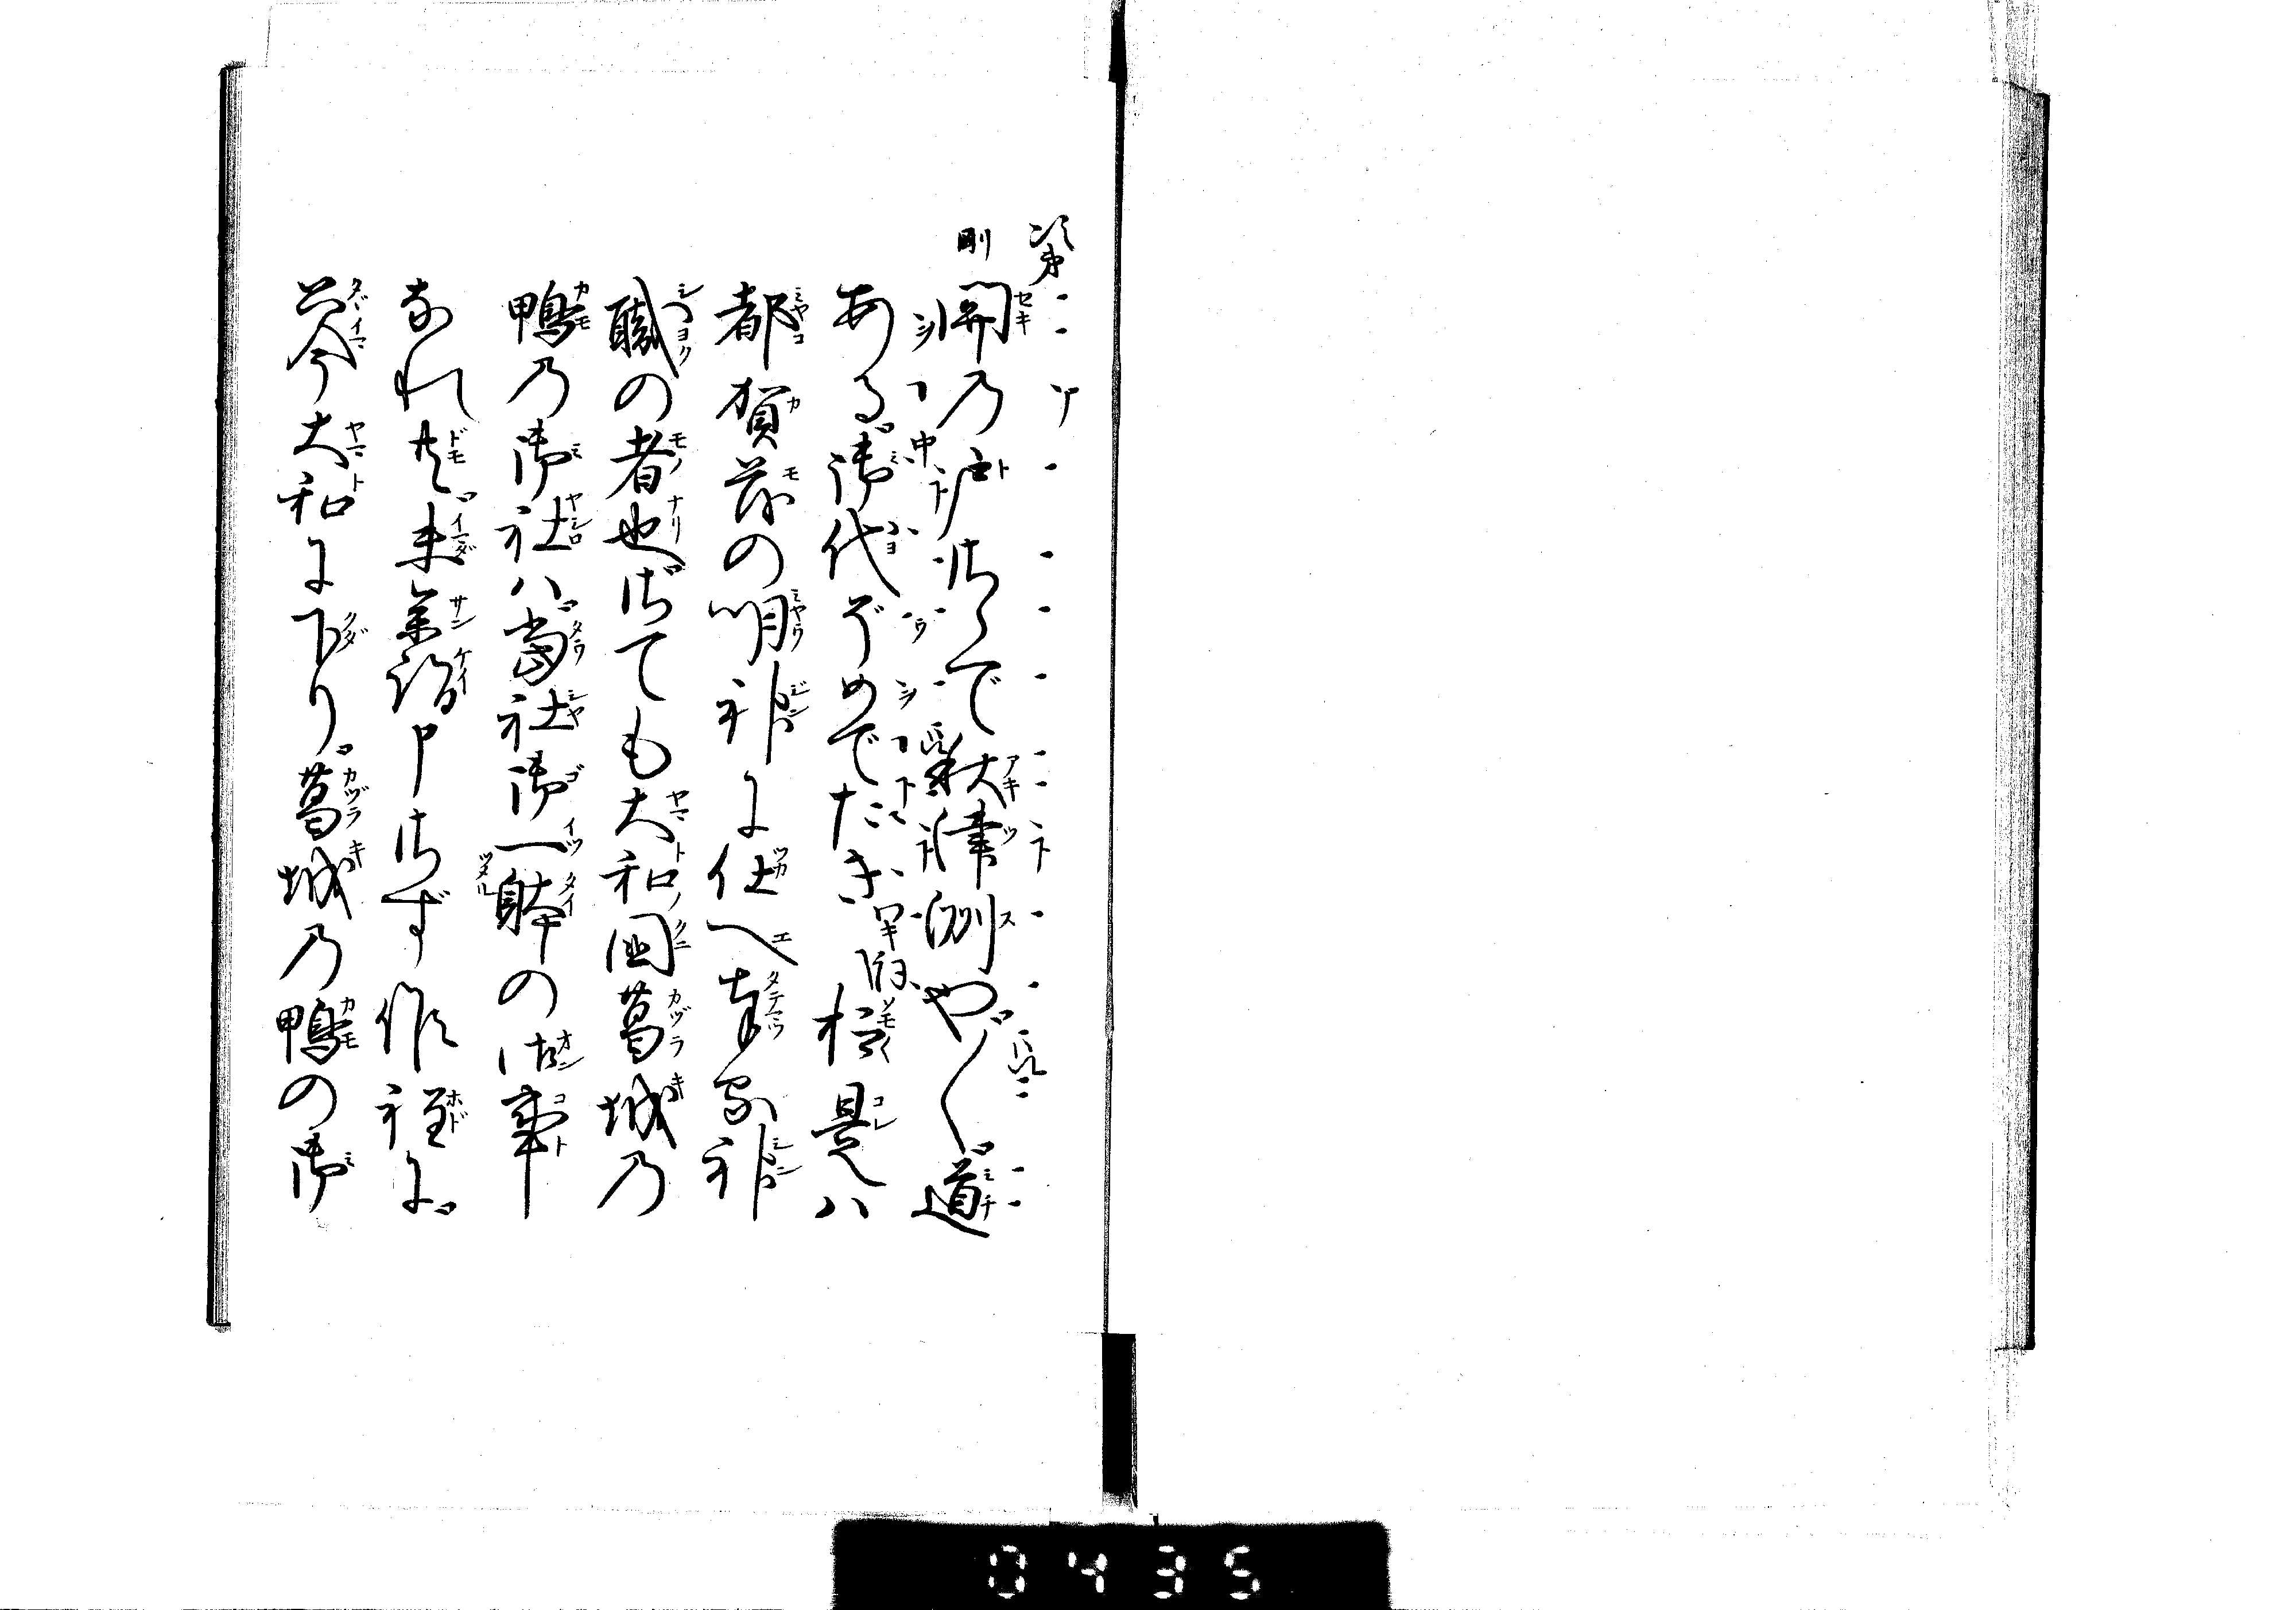 次第
剛 関乃戸さゝで秋津洲や〳〵道
ある御代ぞめでたき 抑是ハ
都賀茂の明神に仕へ奉る神
職の者也 さても大和国葛城乃
鴨乃御社ハ當社御一躰の御事
なれ共未参詣申さず候程に
只今大和に下り葛城乃鴨の御
0435